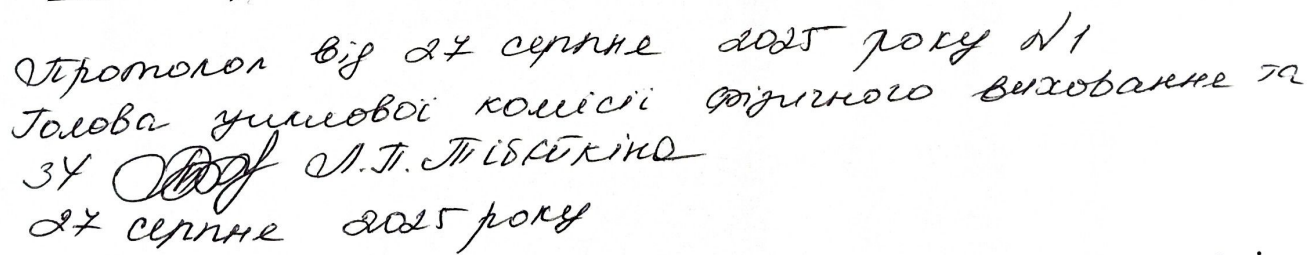 Протокол від 27 серпня 2025 року №1
Голова циклової комісії фізичного виховання та
ЗУ Л.П.
27 серпня 2025 року